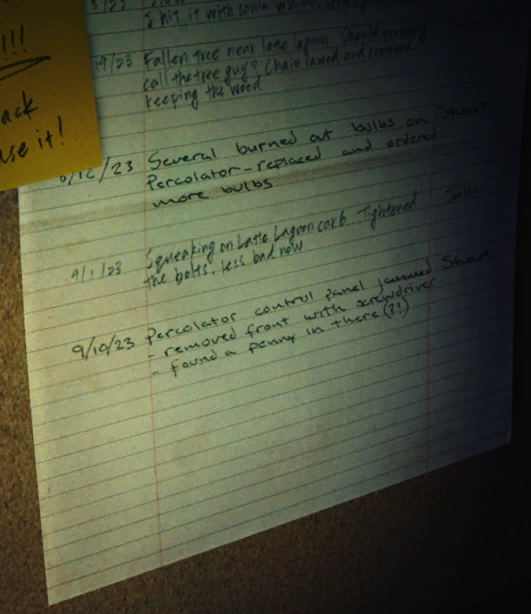 !!!
ack
use it!
/23
I hit it with some
19/23 Fallen tree near latte lagoon. Should probably
call the tree guy? Chain sawed and removed.
keeping the wood
23 Several burned out bulbs on Stuart
Percolator-replaced and ordered
more bulbs
9/1/23 Squeaking on Latte Lagoon carb. Tightened
the bolts. less bad now
9/10/23 Percolator control panel jammed Stuart
- removed front with screwdriver
- found a penny in there (?!)